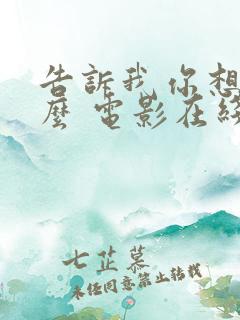 告訴我 你想
麼 電影在綫
七芷慕
未經同意禁止轉載